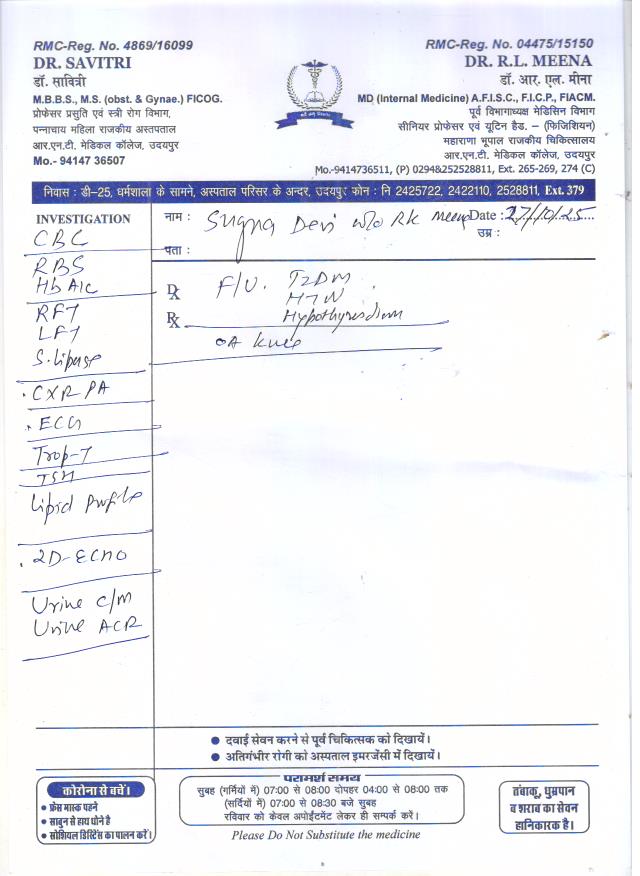 RMC-Reg. No. 4869/16099
DR. SAVITRI
डॉ. सावित्री
M.B.B.S., M.S. (obst. & Gynae.) FICOG.
प्रोफेसर प्रसुति एवं स्त्री रोग विभाग,
पन्नाचाय महिला राजकीय अस्तपताल
आर.एन.टी. मेडिकल कॉलेज, उदयपुर
Mo.- 94147 36507
RMC-Reg. No. 04475/15150
DR. R.L. MEENA
डॉ. आर. एल. मीना
MD (Internal Medicine) A.F.I.S.C., F.I.C.P., FIACM.
पूर्व विभागाध्यक्ष मेडिसिन विभाग
सीनियर प्रोफेसर एवं यूटिन हैड. – (फिजिशियन)
महाराणा भूपाल राजकीय चिकित्सालय
आर.एन.टी. मेडिकल कॉलेज, उदयपुर
Mo.-9414736511, (P) 0294&252528811, Ext. 265-269, 274 (C)
निवास : डी-25, धर्मशाला के सामने, अस्पताल परिसर के अन्दर, उदयपुर फोन : नि 2425722, 2422110, 2528811, Ext. 379
नाम : Sugna Devi w/o RK Meena Date : 27/10/25
उम्र :
पता :
INVESTIGATION
CBC
RBS
HbA1c
RFT
LFT
S. Lipase
. CXR PA
. ECG
Trop-T
TSH
Lipid Profile
. 2D-ECHO
Urine C/M
Urine ACR
Dx F/U. T2DM
HTN
Rx Hypothyroidism
OA Knee
● दवाई सेवन करने से पूर्व चिकित्सक को दिखायें।
● अतिगंभीर रोगी को अस्पताल इमरजेंसी में दिखायें।
कोरोना से बचें।
● फ्रेस मास्क पहने
● साबुन से हाथ धोने है
● सोशियल डिस्टेंस का पालन करें।
परामर्श समय
सुबह (गर्मियों में) 07:00 से 08:00 दोपहर 04:00 से 08:00 तक
(सर्दियों में) 07:00 से 08:30 बजे सुबह
रविवार को केवल अपोईंटमेंट लेकर ही सम्पर्क करें।
Please Do Not Substitute the medicine
तंबाकू, धुम्रपान
व शराब का सेवन
हानिकारक है।